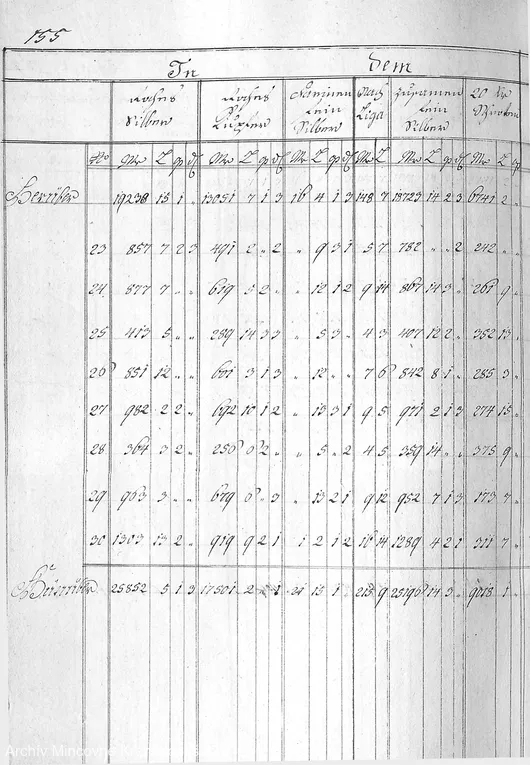 155
In dem
Rohes Silber Rohes Kupfer fein Silber Nach Liga zusamen fein Silber 20 kr
No Mr L q d Mr L q d M L q d M L Mr L q d Mr L q
19238 15 1 " 13051 7 1 3 16 4 1 3 148 7 18723 14 2 3 6741 2 "
23 857 7 2 3 491 2 " 2 " 9 3 1 5 7 782 " " 2 242 " "
24 877 7 " " 619 5 2 " " 12 1 2 9 14 867 14 3 " 261 9 "
25 413 5 " " 289 14 3 3 " 5 3 " 4 3 407 12 2 " 352 13 "
26 851 12 " " 601 3 1 3 " 12 " " 7 6 842 8 1 " 285 3 "
27 982 2 2 " 692 10 1 2 " 13 3 1 9 5 971 2 1 3 274 15 "
28 364 3 2 " 256 6 2 " " 5 " 2 4 5 359 14 " " 375 9 "
29 963 3 " " 679 6 " 3 " 13 2 1 9 12 952 7 1 3 173 7 "
30 1303 13 2 " 919 9 2 1 1 2 1 2 16 14 1289 4 2 1 311 7 "
25852 5 1 3 17501 2 2 1 21 15 1 " 215 9 25196 14 3 " 9018 1 "
Archiv Mincovne